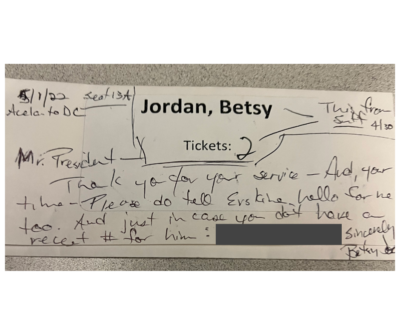 5/1/22 Seat 13A
Acela to DC
Jordan, Betsy
This from
4/30
Tickets: 2
Mr. President -
Thank you for your service - And, your
time - Please do tell Erskine hello for me
too. And just in case you don't have a
recent # for him:
Sincerely
Betsy